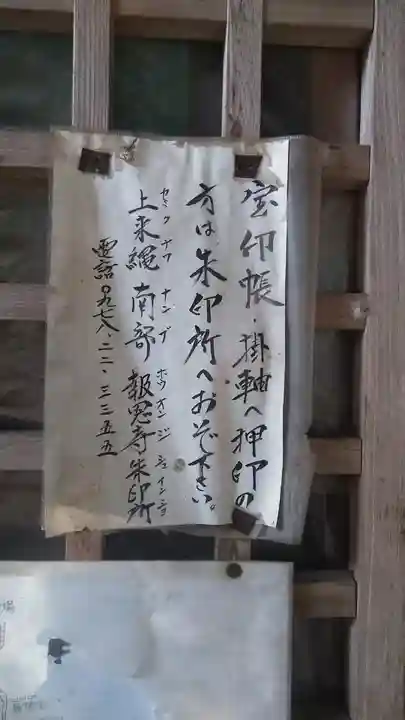 宝印帳・掛軸へ押印の
方は朱印所へおそ下さい。
上来縄 南部 報恩寺朱印所
カミクナワ ナンブ ホウオンジ シュインショ
電話〇九七八・二二・三三五五
場